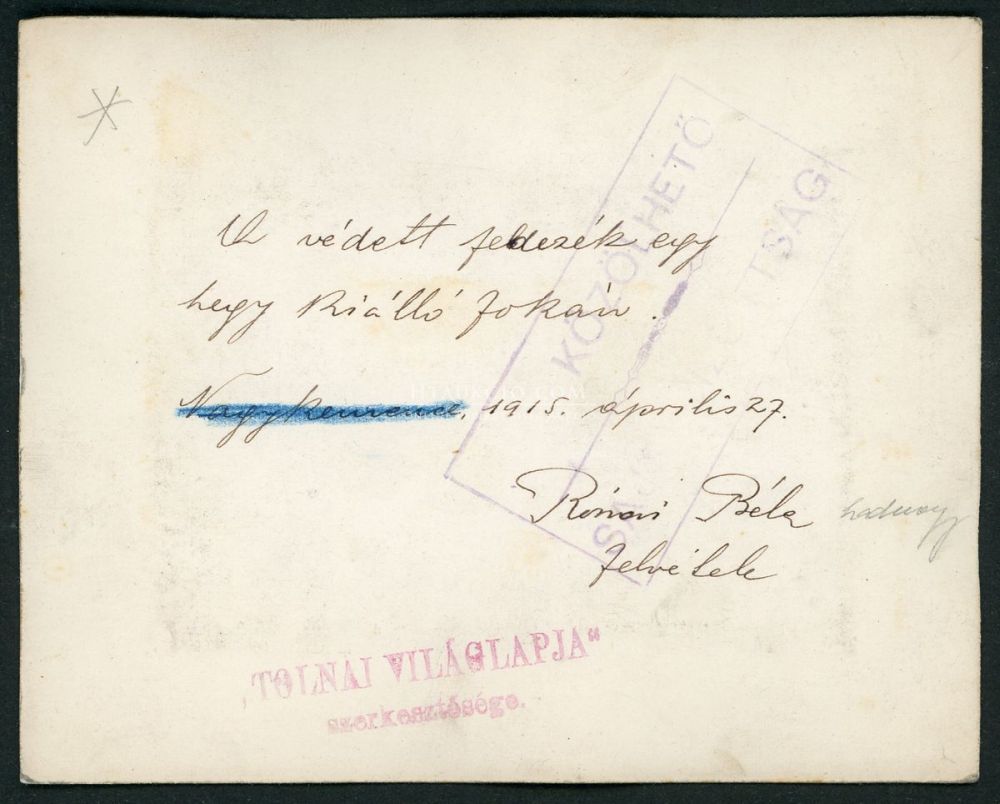 védett fedezék egy
hegy kiálló fokán.
Nagykemence, 1915. április 27.
Rónai Béla
felvétele
KÖZÖLHETŐ
"TOLNAI VILÁGLAPJA"
szerkesztősége.